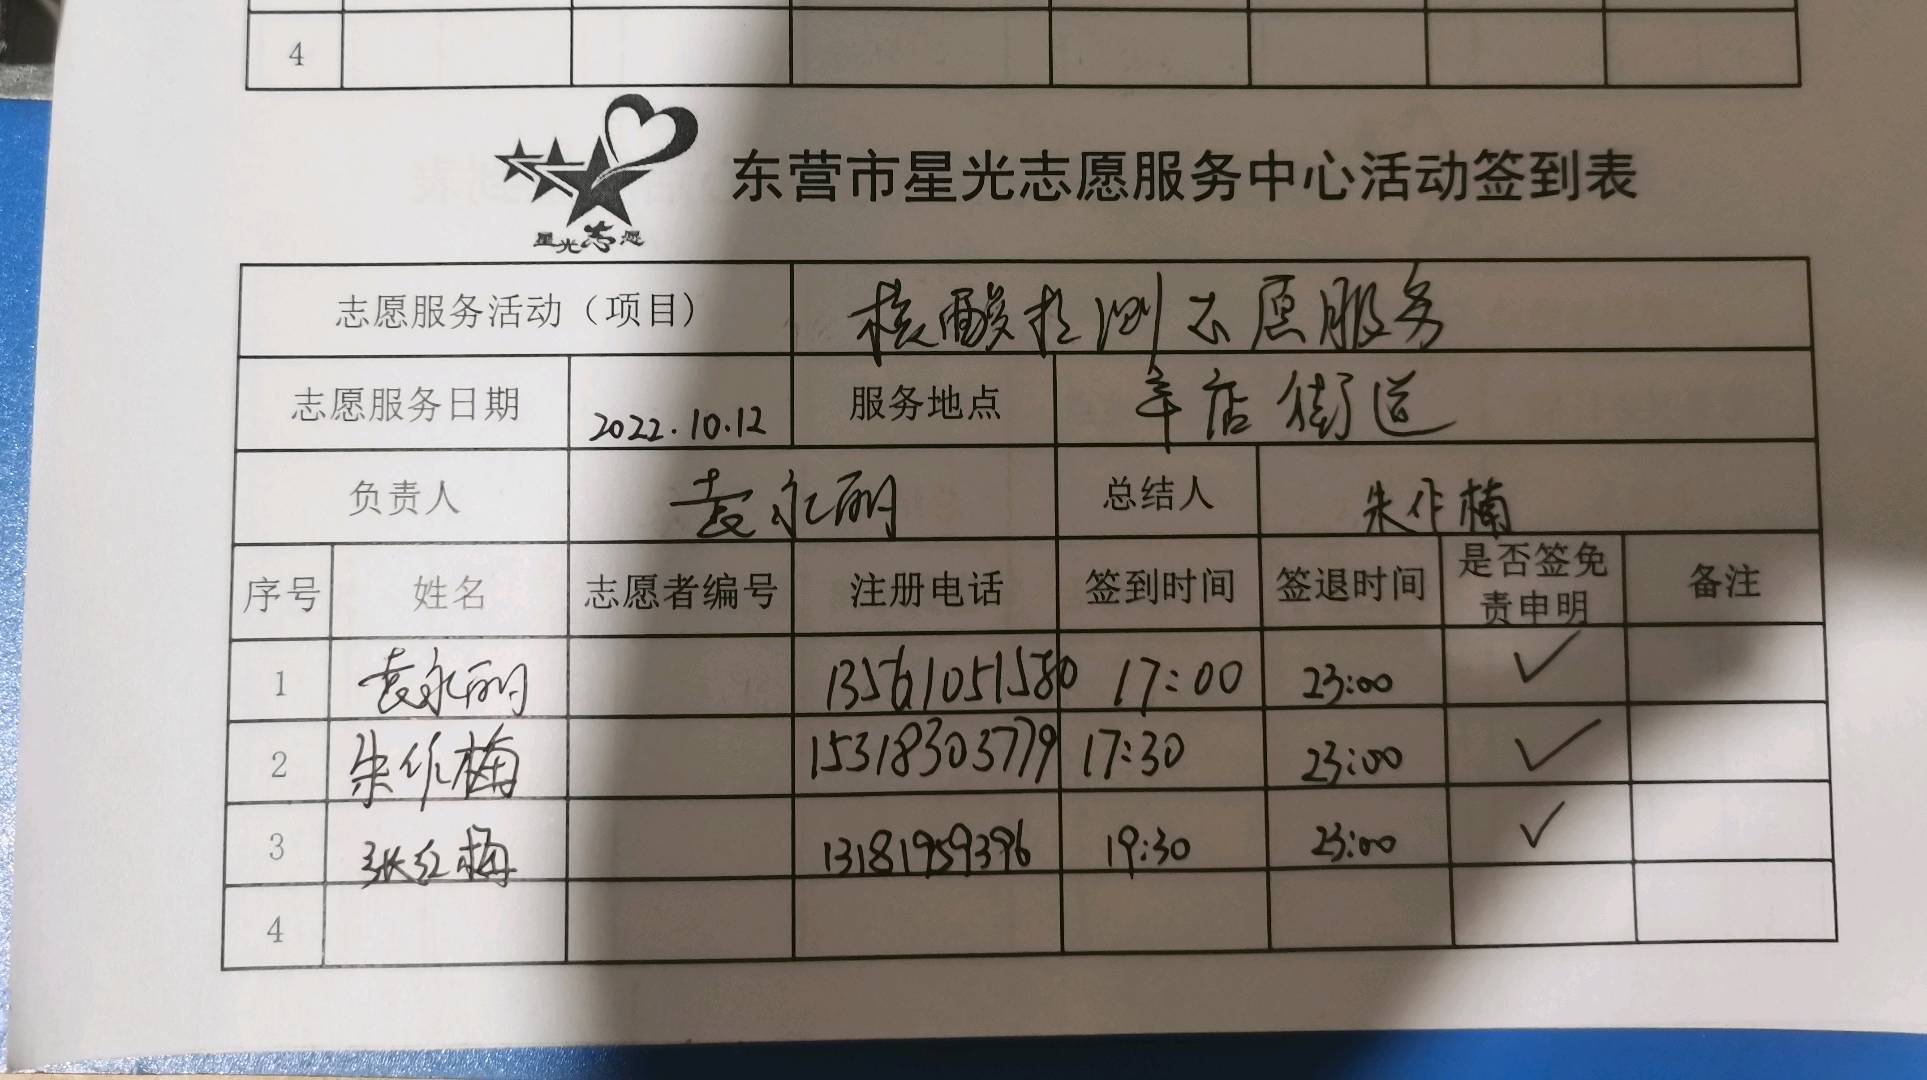 4
星光志愿
东营市星光志愿服务中心活动签到表
志愿服务活动（项目） 核酸检测志愿服务
志愿服务日期 2022.10.12 服务地点 辛店街道
负责人 袁永丽 总结人 朱作楠
序号 姓名 志愿者编号 注册电话 签到时间 签退时间 是否签免责申明 备注
1 袁永丽 13561051580 17:00 23:00 ✓
2 朱作楠 15318303779 17:30 23:00 ✓
3 张红梅 13181959396 19:30 23:00 ✓
4